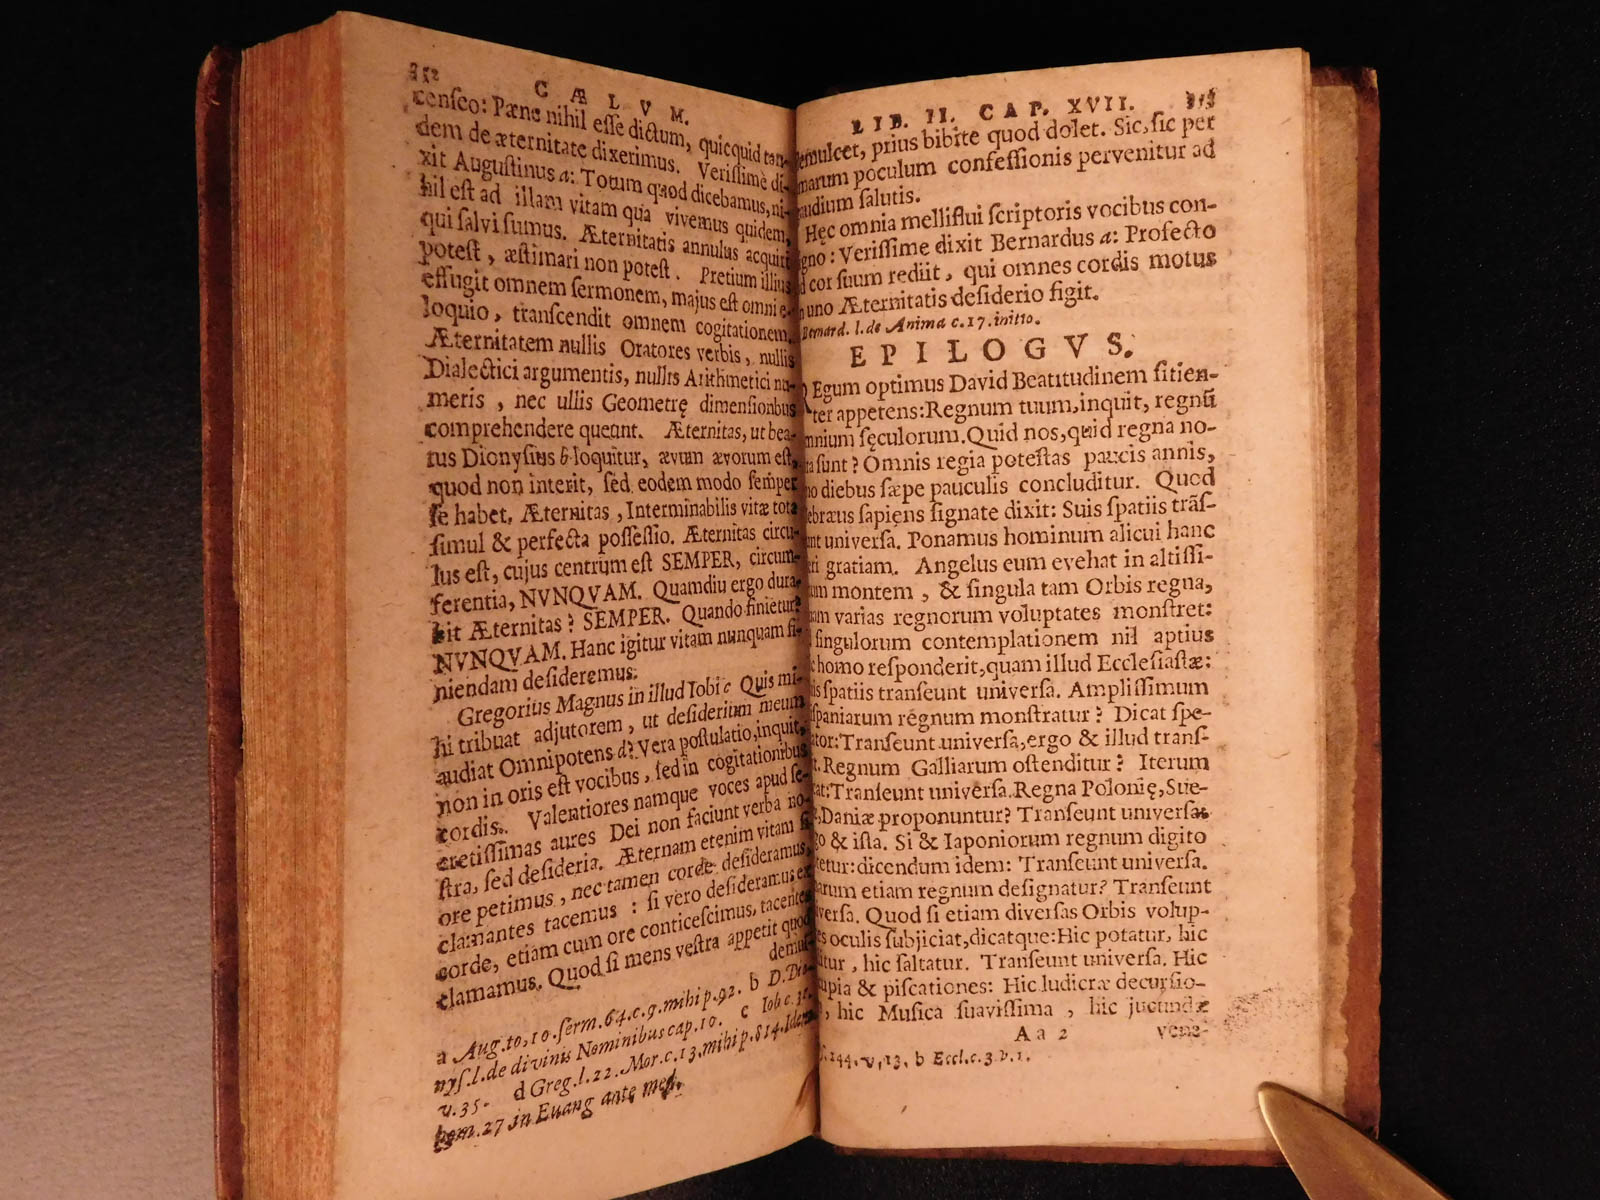 352 CÆLVM.
censeo: Pæne nihil esse dictum, quicquid tan-
dem de æternitate dixerimus. Verissimè di-
xit Augustinus a: Totum quod dicebamus, ni-
hil est ad illam vitam qua vivemus quidem,
qui salvi sumus. Æternitatis annulus acquiri
potest, æstimari non potest. Pretium illius
effugit omnem sermonem, majus est omni e-
loquio, transcendit omnem cogitationem.
Æternitatem nullis Oratores verbis, nullis
Dialectici argumentis, nullis Arithmetici nu-
meris, nec ullis Geometrę dimensionbus
comprehendere queunt. Æternitas, ut bea-
tus Dionysius b loquitur, ævum ævorum est,
quod non interit, sed eodem modo semper
se habet. Æternitas, Interminabilis vitæ tota
simul & perfecta possessio. Æternitas circu-
lus est, cujus centrum est SEMPER, circum-
ferentia, NVNQVAM. Quamdiu ergo dura-
bit Æternitas? SEMPER. Quando finietur?
NVNQVAM. Hanc igitur vitam nunquam fi-
niendam desideremus.
Gregorius Magnus in illud Iobi c Quis mi-
hi tribuat adjutorem, ut desiderium meum
audiat Omnipotens d? Vera postulatio, inquit,
non in oris est vocibus, sed in cogitationibus
cordis. Valentiores namque voces apud se-
cretissimas aures Dei non faciunt verba no-
stra, sed desideria. Æternam etenim vitam si
ore petimus, nec tamen corde desideramus,
clamantes tacemus: si vero desideramus ex
corde, etiam cum ore conticescimus, tacentes
clamamus. Quod si mens vestra appetit quod
demul-
a Aug. to, 10. serm. 64. c. 9. mihi p. 92. b D. Dio-
nys. l. de divinis Nominibus cap. 10. c Iob c. 31.
v. 35. d Greg. l. 22. Mor. c. 13. mihi p. 814. Idem
hom. 27 in Euang ante med.
LIB. II. CAP. XVII. 353
demulcet, prius bibite quod dolet. Sic, sic per
amarum poculum confessionis pervenitur ad
gaudium salutis.
Hęc omnia melliflui scriptoris vocibus con-
signo: Verissime dixit Bernardus a: Profecto
ad cor suum rediit, qui omnes cordis motus
in uno Æternitatis desiderio figit.
Bernard. l. de Anima c. 17. initio.
EPILOGVS.
REgum optimus David Beatitudinem sitien-
ter appetens: Regnum tuum, inquit, regnũ
omnium sęculorum. Quid nos, quid regna no-
sunt? Omnis regia potestas paucis annis,
diebus sæpe pauculis concluditur. Quod
Hebræus sapiens signate dixit: Suis spatiis trãs-
eunt universa. Ponamus hominum alicui hanc
gratiam. Angelus eum evehat in altissi-
mum montem, & singula tam Orbis regna,
quam varias regnorum voluptates monstret:
singulorum contemplationem nil aptius
homo responderit, quam illud Ecclesiastæ:
Suis spatiis transeunt universa. Amplissimum
Hispaniarum regnum monstratur? Dicat spe-
ctator: Transeunt universa, ergo & illud trans-
it. Regnum Galliarum ostenditur? Iterum
dicat: Transeunt universa. Regna Polonię, Sue-
Daniæ proponuntur? Transeunt universa:
ergo & ista. Si & Iaponiorum regnum digito
dicendum idem: Transeunt universa.
etiam regnum designatur? Transeunt
universa. Quod si etiam diversas Orbis volup-
tates oculis subjiciat, dicatque: Hic potatur, hic
hic saltatur. Transeunt universa. Hic
& piscationes: Hic ludicræ decursio-
hic Musica suavissima, hic jucundæ
Aa 2 vene-
144. v, 13. b Eccl. c. 3. v. 1.